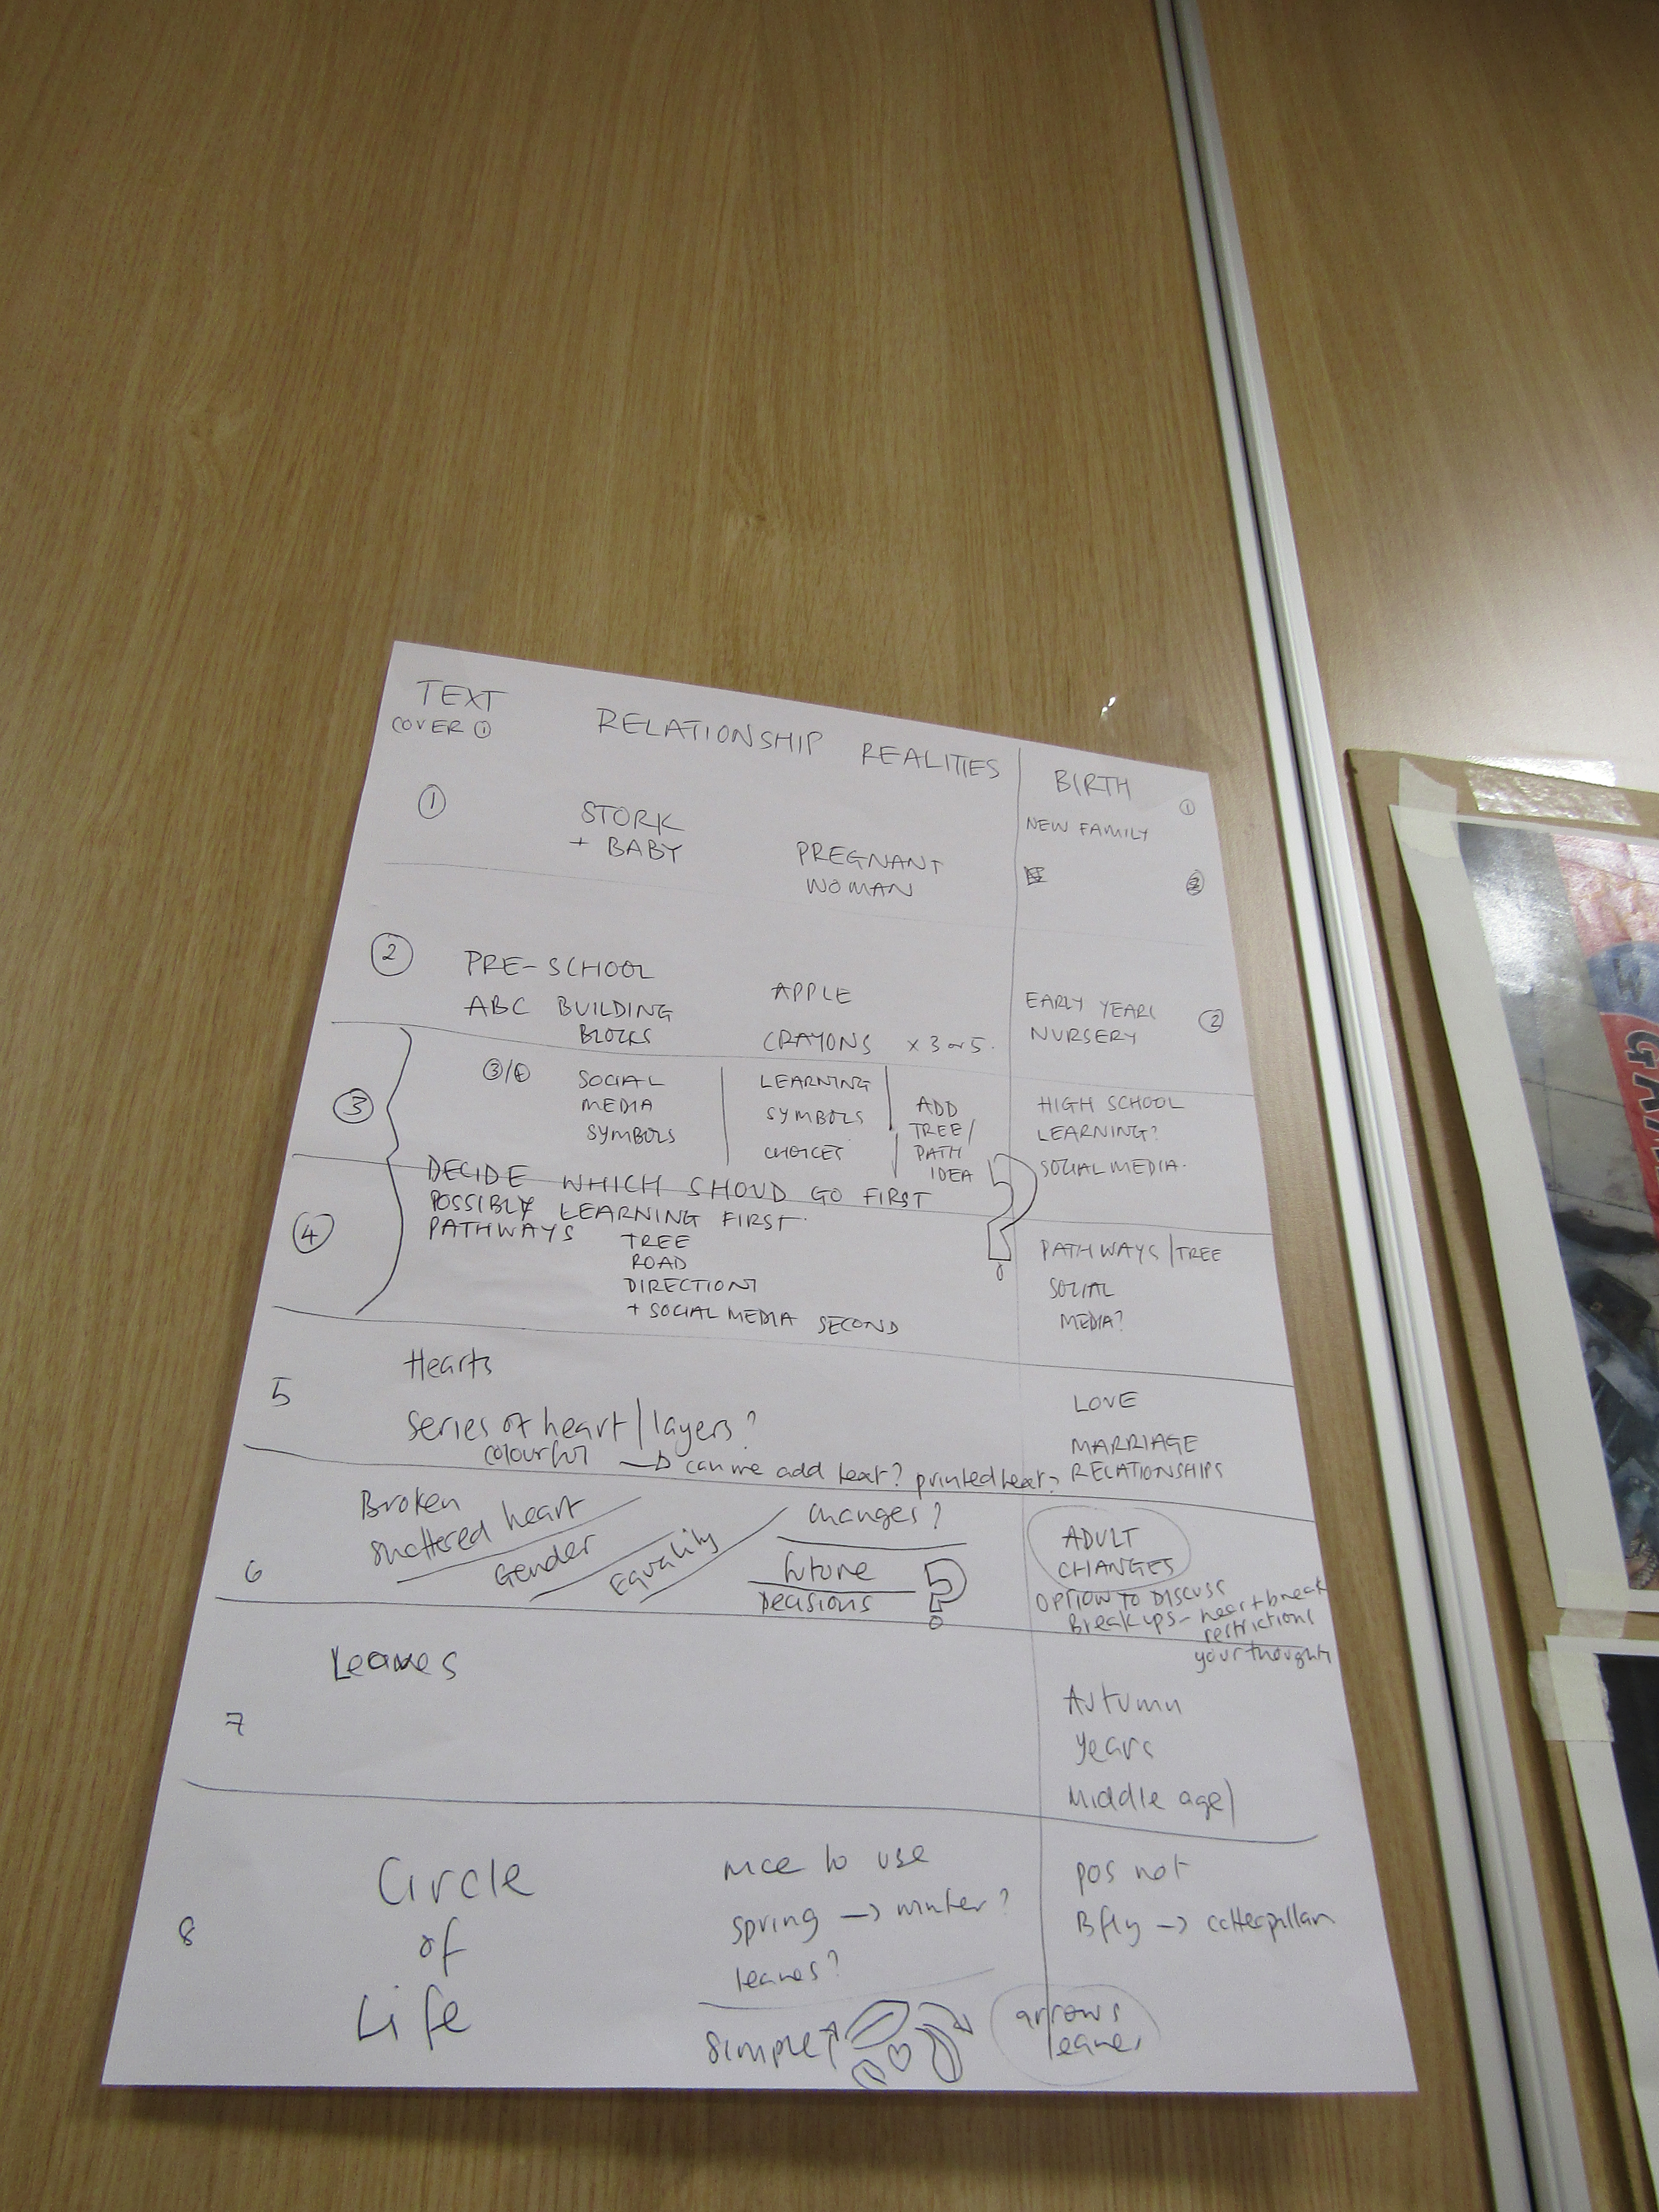 TEXT
COVER ①
RELATIONSHIP REALITIES
BIRTH ①
NEW FAMILY
①
STORK
+ BABY
PREGNANT
WOMAN
②
PRE-SCHOOL
ABC BUILDING
BLOCKS
APPLE
CRAYONS x 3 or 5.
EARLY YEARS
NURSERY
②
③
③/④
SOCIAL
MEDIA
SYMBOLS
LEARNING
SYMBOLS
CHOICES
ADD
TREE/
PATH
IDEA
HIGH SCHOOL
LEARNING?
SOCIAL MEDIA.
④
DECIDE WHICH SHOUD GO FIRST
POSSIBLY LEARNING FIRST.
PATHWAYS
TREE
ROAD
DIRECTIONS
+ SOCIAL MEDIA SECOND
?
PATHWAYS/TREE
SOCIAL
MEDIA?
5
Hearts
Series of heart/layers?
colourful
→ can we add text? printed text?
LOVE
MARRIAGE
RELATIONSHIPS
6
Broken
Shattered heart
Gender
Equality
changes?
future
Decisions
?
ADULT
CHANGES
OPTION TO DISCUSS
Breakups - heartbreak
restrictions
your thoughts
7
Leaves
Autumn
years
Middle age/
8
Circle
of
Life
nice to use
spring → winter?
leaves?
simple
pos not
Bfly → catterpillar
arrows
leaves